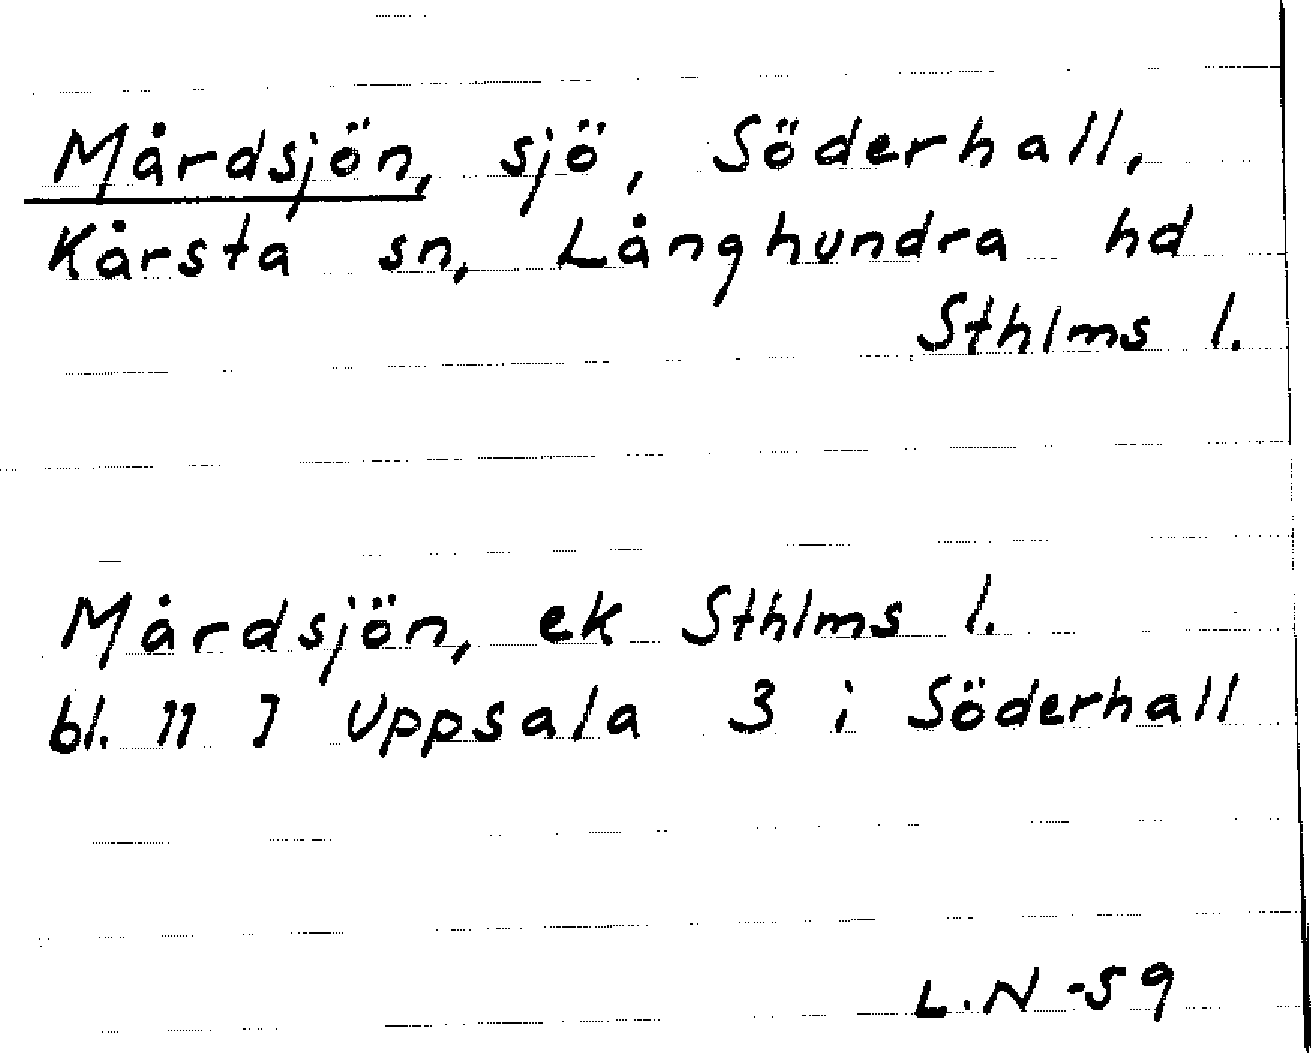 Mårdsjön, sjö, Söderhall,
Kårsta sn, Långhundra hd
Sthlms l.
Mårdsjön, ek Sthlms l.
bl. 11 I Uppsala 3 i Söderhall
L.N -59